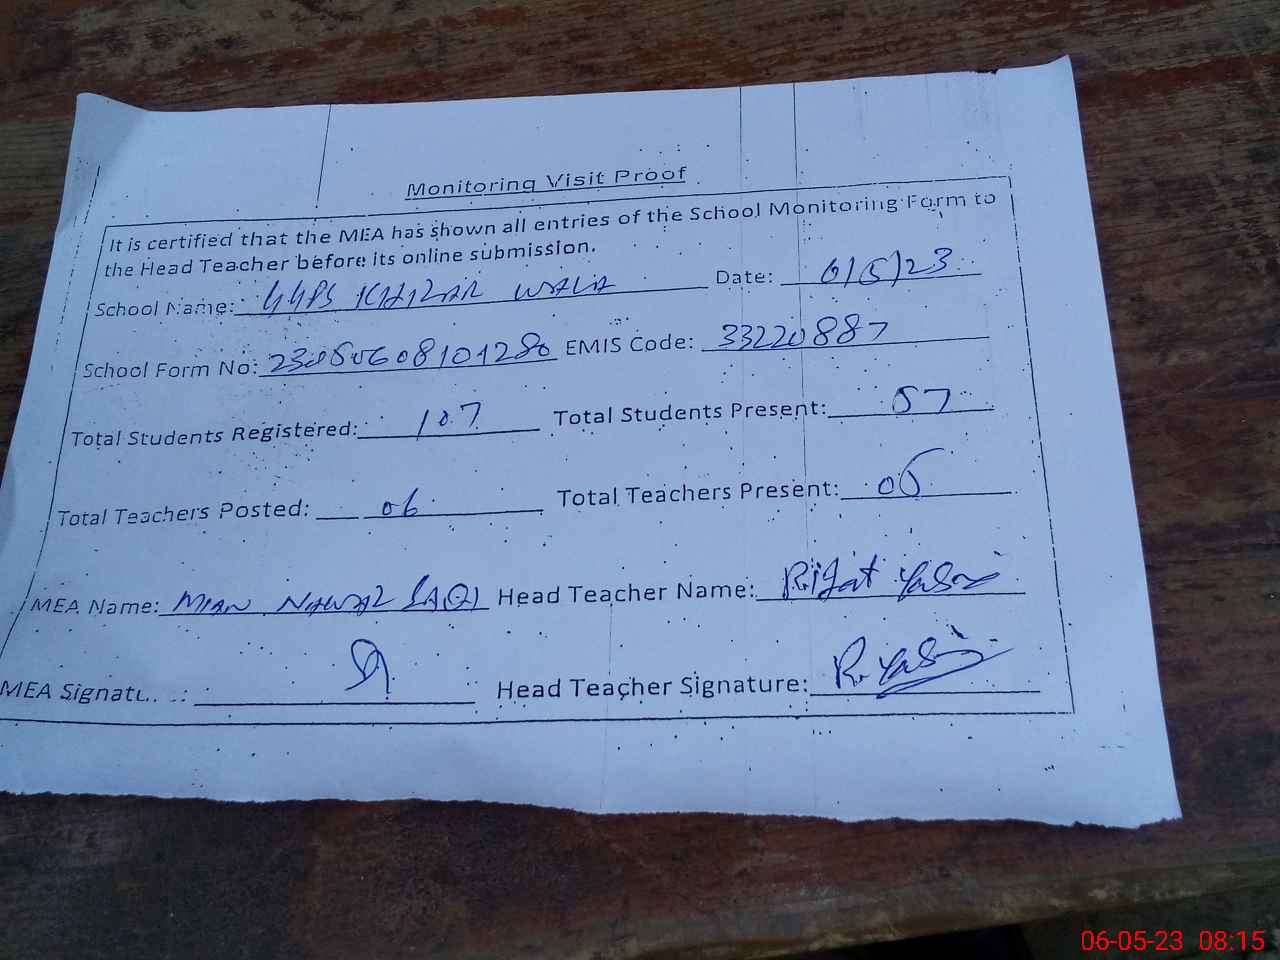 Monitoring Visit Proof
It is certified that the MEA has shown all entries of the School Monitoring Form to
the Head Teacher before its online submission.
School Name: GGPS KHIZAR WALA Date: 6/5/23
School Form No: EMIS Code: 33220887
Total Students Registered: 107 Total Students Present: 57
Total Teachers Posted: 06 Total Teachers Present:
MEA Name: MIAN NAWAZ Head Teacher Name: Rifat
MEA Signatu.. : Head Teacher Signature:
06-05-23 08:15